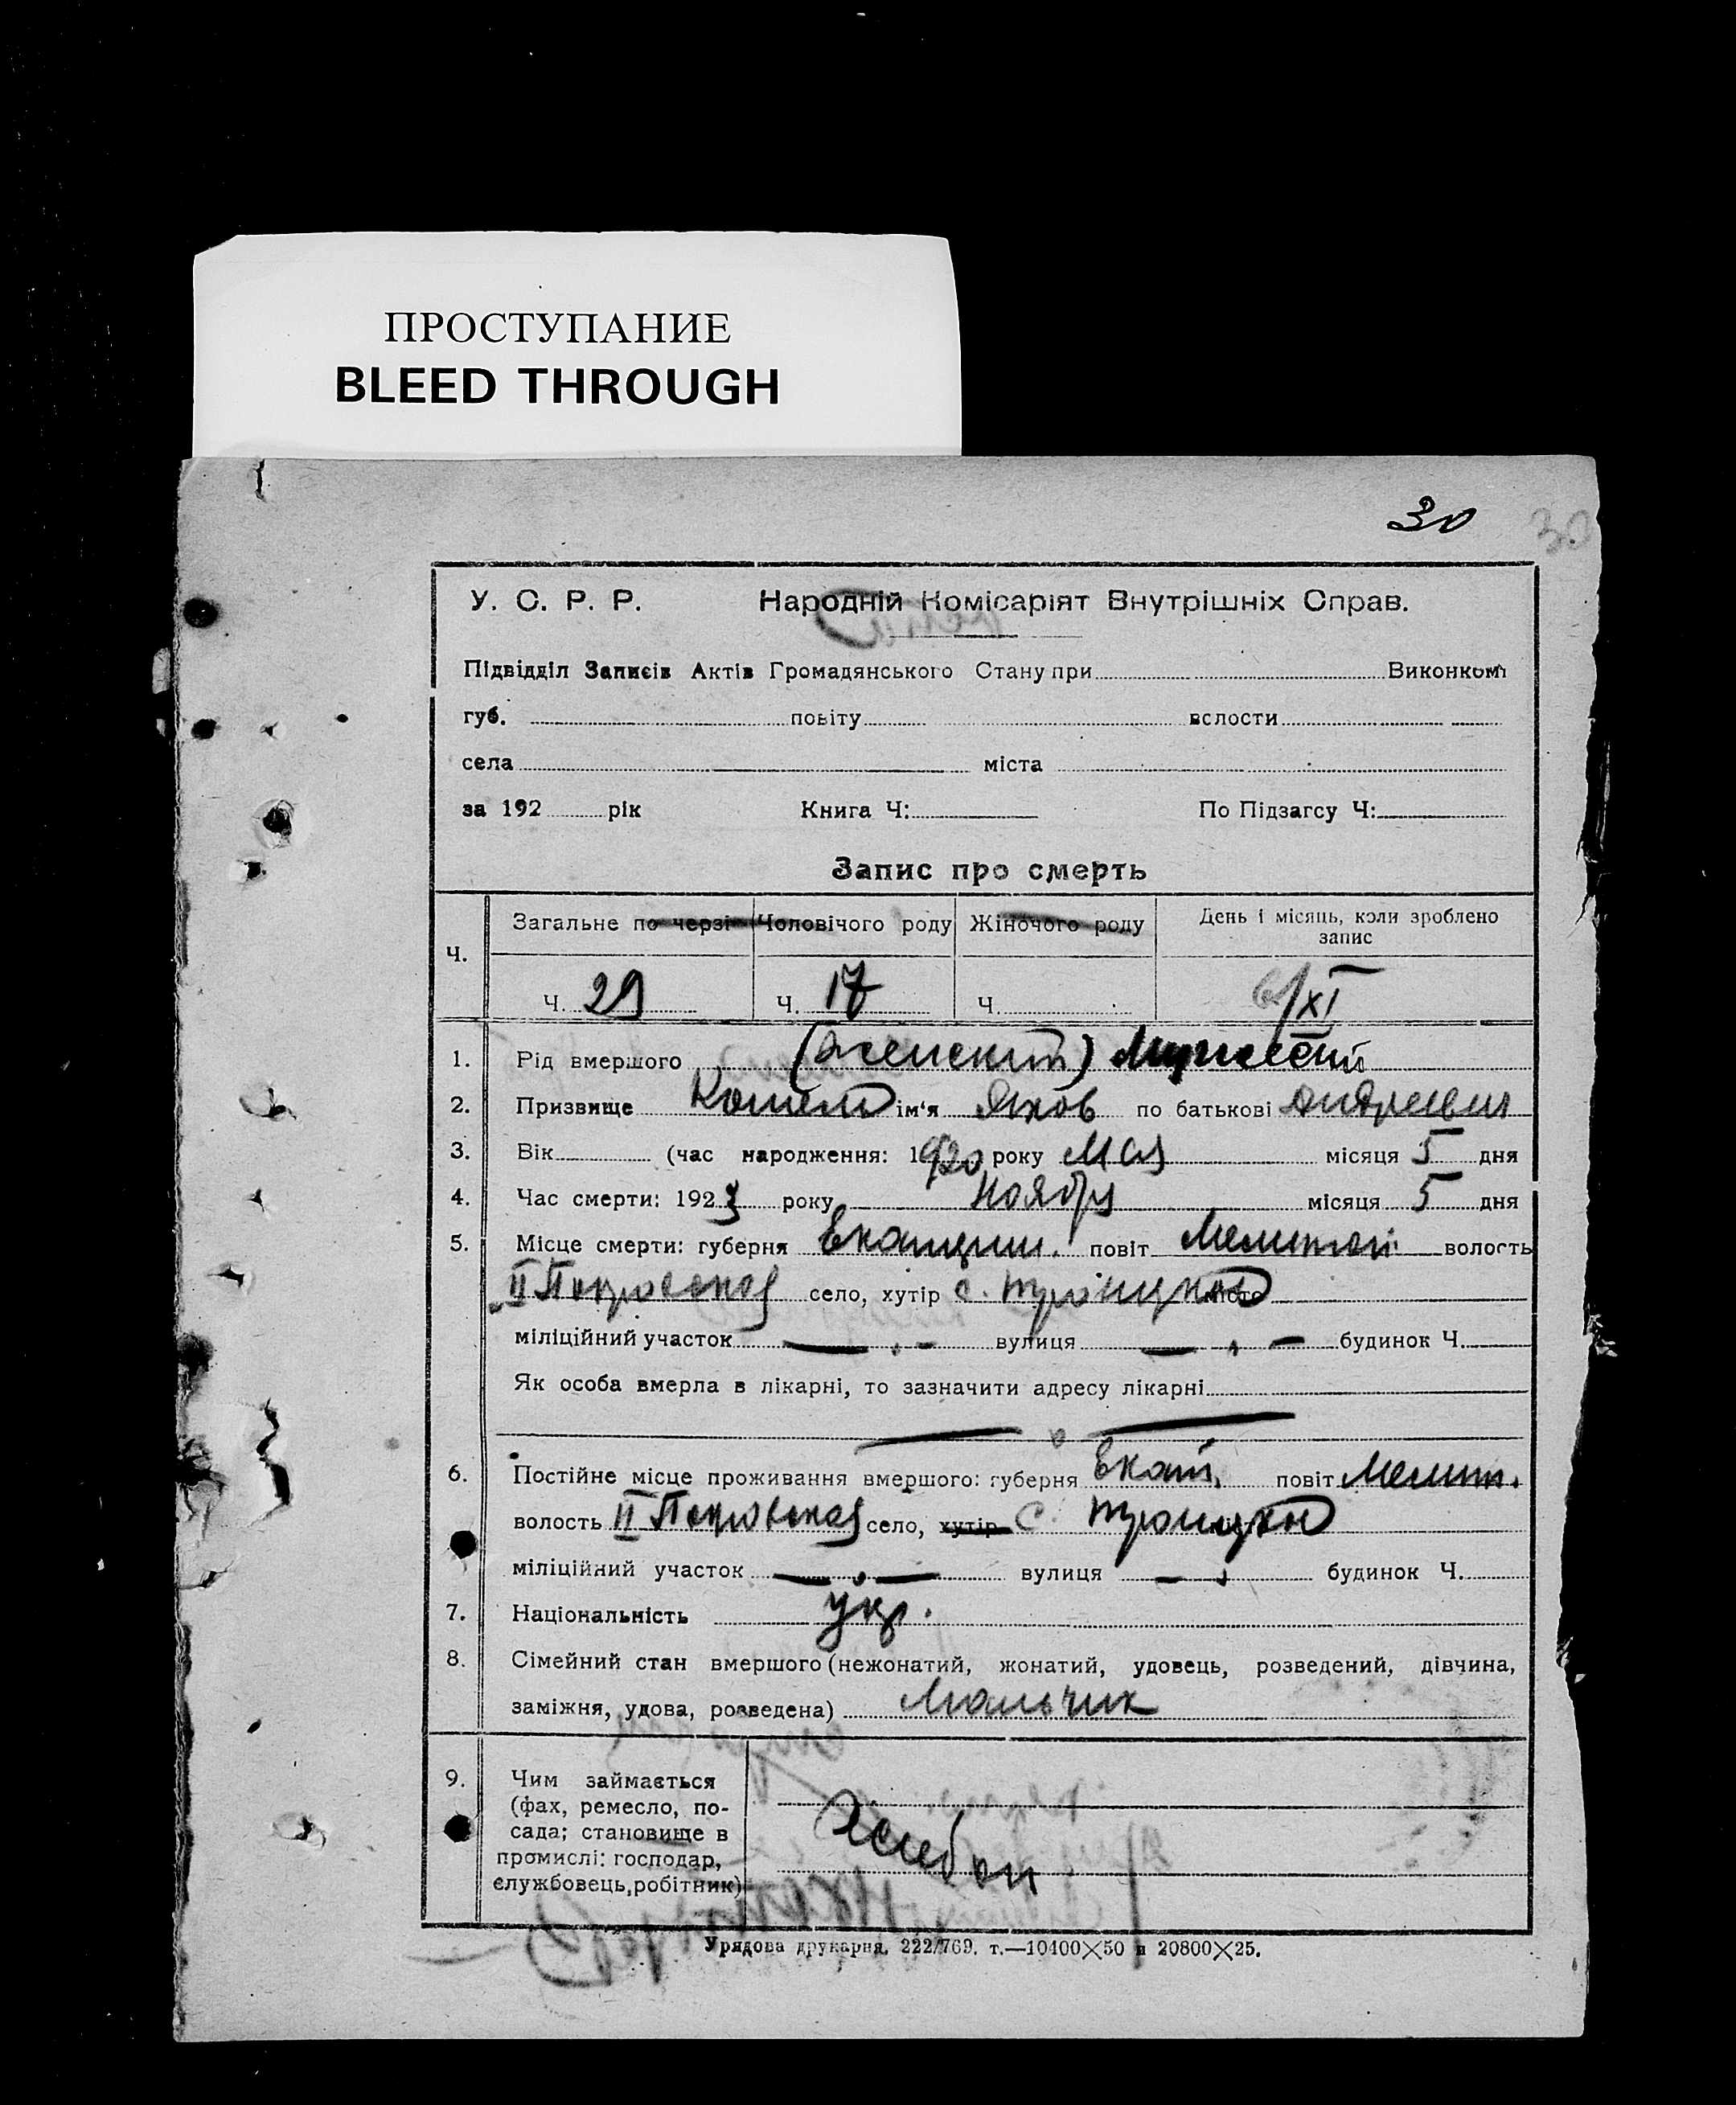 ПРОСТУПАНИЕ
BLEED THROUGH
30 30
У. С. Р. Р. Народній Комісаріят Внутрішніх Справ.
Підвідділ Записів Актів Громадянського Стану при Виконком
губ. повіту волости
села міста
за 192 рік Книга Ч: По Підзагсу Ч:
Запис про смерть
Ч. Загальне по черзі Чоловічого роду Жіночого роду День і місяць, коли зроблено запис
Ч. 29 Ч. 17 Ч. 6/XI
1. Рід вмершого (Женский) Мужеский
2. Призвище ім'я Яков по батькові Андреевич
3. Вік (час народження: 1920 року Мая місяця 5 дня
4. Час смерти: 1923 року Ноября місяця 5 дня
5. Місце смерти: губерня повіт волость
II Покровская село, хутір с. Троицкое місто
міліційний участок — „ — вулиця — „ — будинок Ч.
Як особа вмерла в лікарні, то зазначити адресу лікарні
6. Постійне місце проживання вмершого: губерня Екат. повіт Мелит.
волость II Покровская село, хутір с. Троицкое
міліційний участок — „ — вулиця — „ будинок Ч.
7. Національність укр.
8. Сімейний стан вмершого (нежонатий, жонатий, удовець, розведений, дівчина,
заміжня, удова, розведена) Мальчик
9. Чим займається
(фах, ремесло, по-
сада; становище в
промислі: господар,
службовець, робітник)
Урядова друкарня. 222/769. т.—10400×50 и 20800×25.